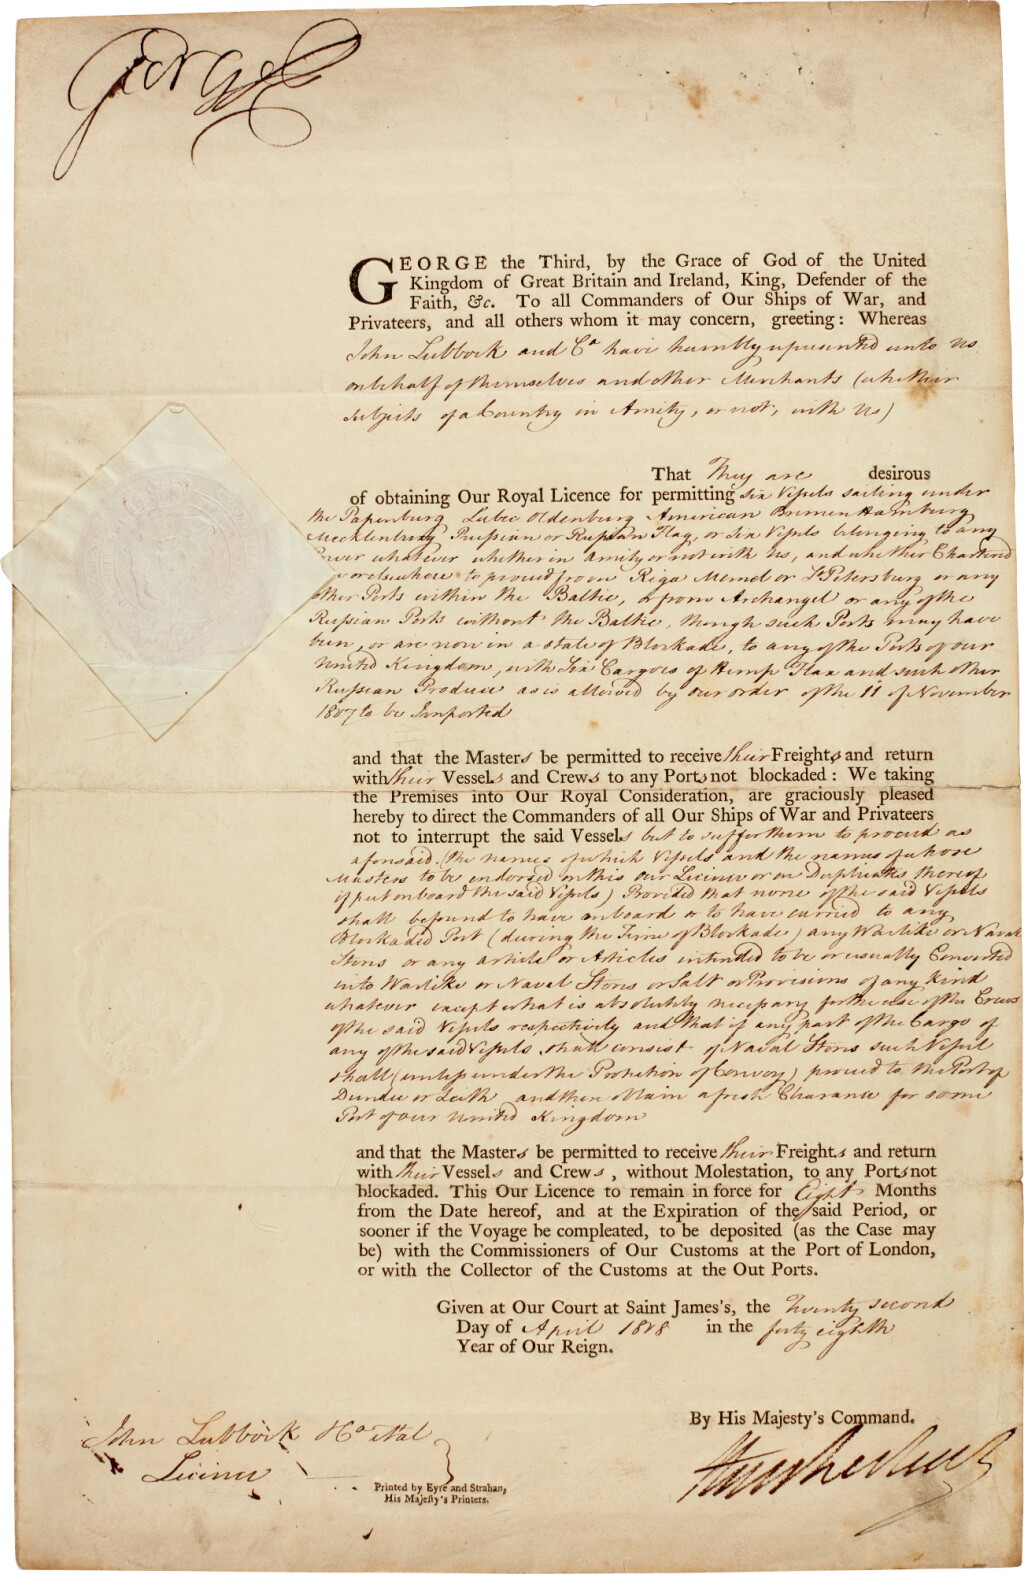 George R
GEORGE the Third, by the Grace of God of the United
Kingdom of Great Britain and Ireland, King, Defender of the
Faith, &c. To all Commanders of Our Ships of War, and
Privateers, and all others whom it may concern, greeting: Whereas
John Lubbock and Co have humbly represented unto us
on behalf of themselves and other Merchants (whether
subjects of a Country in Amity, or not, with us)
That They are desirous
of obtaining Our Royal Licence for permitting six Vessels sailing under
the Papenburg Lubec Oldenburg American Bremen Hamburg
Mecklenburg Prussian or Russian Flag, or six Vessels belonging to any
Power whatever whether in amity or not with us, and whether Chartered
or elsewhere to proceed from Riga Memel or St Petersburg or any
other Ports within the Baltic, or from Archangel or any of the
Russian Ports without the Baltic, though such Ports may have
been, or are now in a state of Blockade, to any of the Ports of our
United Kingdom, with Six Cargoes of Hemp Flax and such other
Russian Produce as is allowed by our order of the 11 of November
1807 to be Imported
and that the Masters be permitted to receive their Freights and return
with their Vessels and Crews to any Ports not blockaded: We taking
the Premises into Our Royal Consideration, are graciously pleased
hereby to direct the Commanders of all Our Ships of War and Privateers
not to interrupt the said Vessels but to suffer them to proceed as
aforesaid. (the names of which Vessels and the names of whose
Masters to be endorsed on this our Licence or on Duplicates thereof
if put onboard the said Vessels) Provided that none of the said Vessels
shall be found to have onboard or to have carried to any
Blockaded Port (during the Time of Blockade) any Warlike or Naval
Stores or any article or Articles intended to be or usually Converted
into Warlike or Naval Stores or Salt or Provisions of any kind
whatever except what is absolutely necessary for the use of the Crews
of the said Vessels respectively and that if any part of the Cargo of
any of the said Vessels shall consist of Naval Stores such Vessel
shall (unless under the Protection of Convoy) proceed to the Port of
Dundee or Leith and then obtain a fresh Clearance for some
Port of our United Kingdom
and that the Masters be permitted to receive their Freights and return
with their Vessels and Crews, without Molestation, to any Ports not
blockaded. This Our Licence to remain in force for Eight Months
from the Date hereof, and at the Expiration of the said Period, or
sooner if the Voyage be compleated, to be deposited (as the Case may
be) with the Commissioners of Our Customs at the Port of London,
or with the Collector of the Customs at the Out Ports.
Given at Our Court at Saint James's, the Twenty second
Day of April 1808 in the forty eighth
Year of Our Reign.
By His Majesty's Command.
John Lubbock & Co
Licence
Printed by Eyre and Strahan,
His Majesty's Printers.